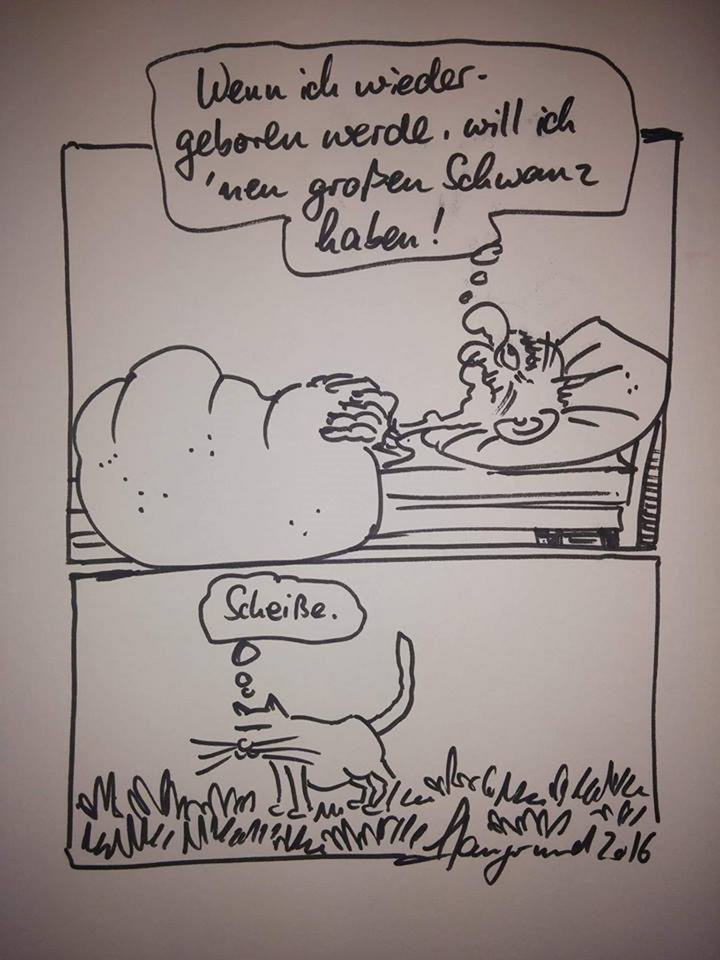 Wenn ich wieder-
geboren werde, will ich
'nen großen Schwanz
haben!
Scheiße.
Hangrund 2016